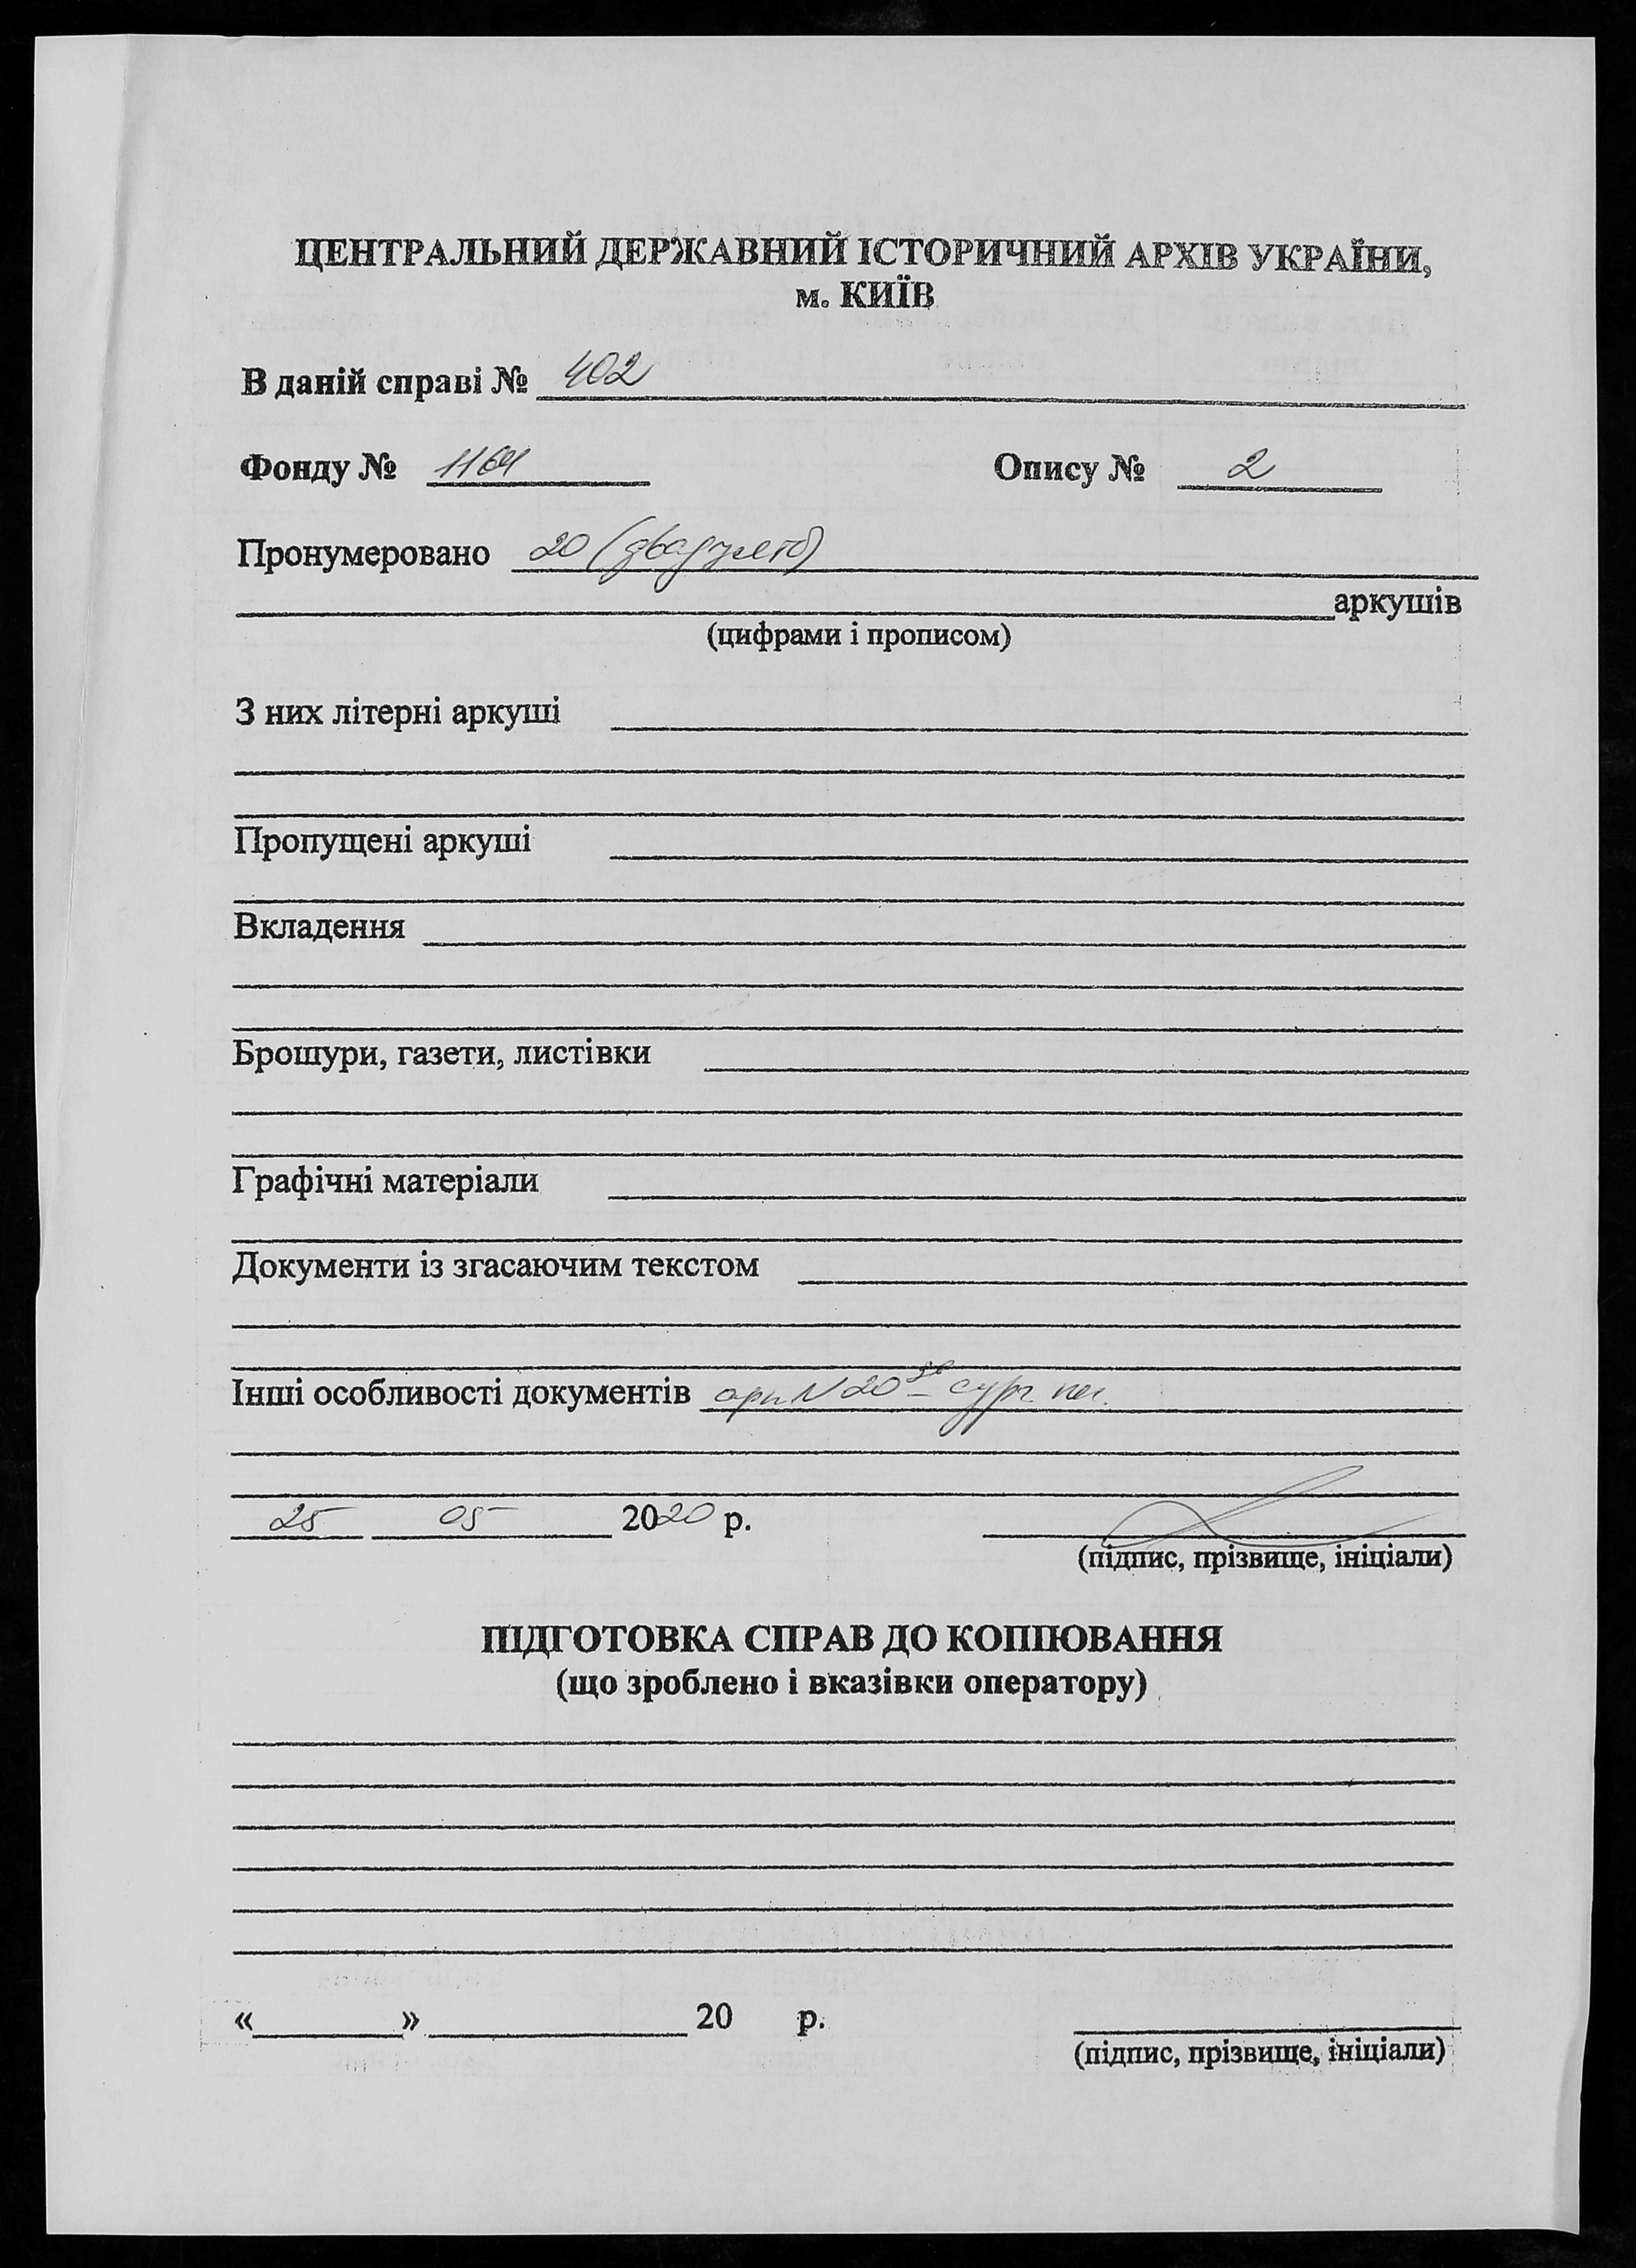 ЦЕНТРАЛЬНИЙ ДЕРЖАВНИЙ ІСТОРИЧНИЙ АРХІВ УКРАЇНИ,
м. КИЇВ
В даній справі № 402
Фонду № 1164 Опису № 2
Пронумеровано 20 (двадцять)
аркушів
(цифрами і прописом)
З них літерні аркуші
Пропущені аркуші
Вкладення
Брошури, газети, листівки
Графічні матеріали
Документи із згасаючим текстом
Інші особливості документів арк N 20 зв – сург. печ.
25 05 2020 р.
(підпис, прізвище, ініціали)
ПІДГОТОВКА СПРАВ ДО КОПІЮВАННЯ
(що зроблено і вказівки оператору)
«        »              20    р.
(підпис, прізвище, ініціали)